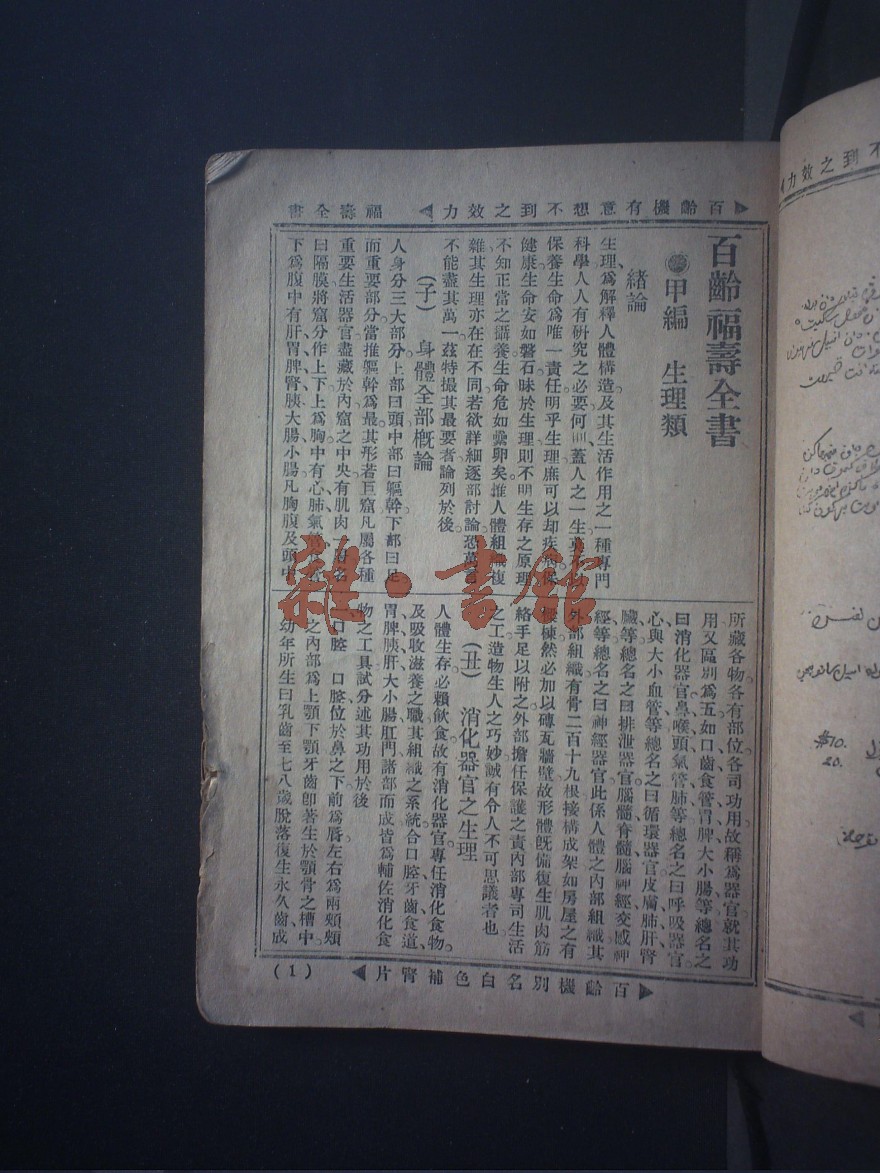 百齡機有意想不到之效力
福壽全書
百齡福壽全書
甲編 生理類
緒論
生理、爲解釋人體構造及其生活作用之一種專門
科學、人人有研究之必要、何 蓋人之一生 以
保養生命爲唯一責任、明乎生理、庶可以却疾病保
健康、生命安如磐石、昧於生理、則不明生存之原理、
不知正當之攝養、生命危如纍卵矣、惟人體組織複
雜、其生理亦在在不同、若欲詳細逐部討論、恐萬言
不能盡其萬一、茲特撮其最要者論列於後、
(子) 身體全部概論
人身分三大部分、上部曰頭、中部曰軀幹、下部曰足、
而重要部分、當推軀幹爲最、其形若巨窟、凡屬各種
重要生活器官、盡藏於內、窟之中央、有肌肉 名
曰隔膜、將窟分作上下、上爲胸、中有心肺氣
下爲腹、中有肝胃脾腎胰大腸小腸、凡胸腹及頭中
所藏各物、各有部位、各司功用、故稱爲器官、就其功
用又區別爲五、如口齒食管胃脾大小腸等、總名之
曰消化器官、鼻喉頭氣管肺等、總名之曰呼吸器官、
心與大小血管等、總名之曰循環器官、皮膚肺肝腎
臟等、總名之曰排泄器官、腦髓脊髓腦神經交感神
經等、總名之曰神經器官、此係人體之內部組織、其
外部組織、有骨二百十九根、接構成架、如房屋之有
樑棟、然必加以磚瓦牆壁、故形體既備、復生肌肉筋
絡手足以附之、外部擔任保護之責、內部專司生活
之工、造物生人之巧妙、誠有令人不可思議者也、
(丑) 消化器官之生理
人體生存、必賴飲食、故有消化器官、專任消化食物、
及吸收滋養之職、其組織之系統、合口腔、牙齒、食道、
胃、脾、胰、肝、大小腸、肛門、諸部而成、皆爲輔佐消化食
物之工具、試分述其功用於後、
口腔 口腔位於鼻之下、前爲唇、左右爲兩頰、頰
之內部、爲上顎下顎、牙齒卽著生於顎骨之槽中、
幼年所生曰乳齒、至七八歲脫落、復生永久齒、成
百齡機別名白色補腎片
(1)
不到之效力
#10.
20.
雜·書館